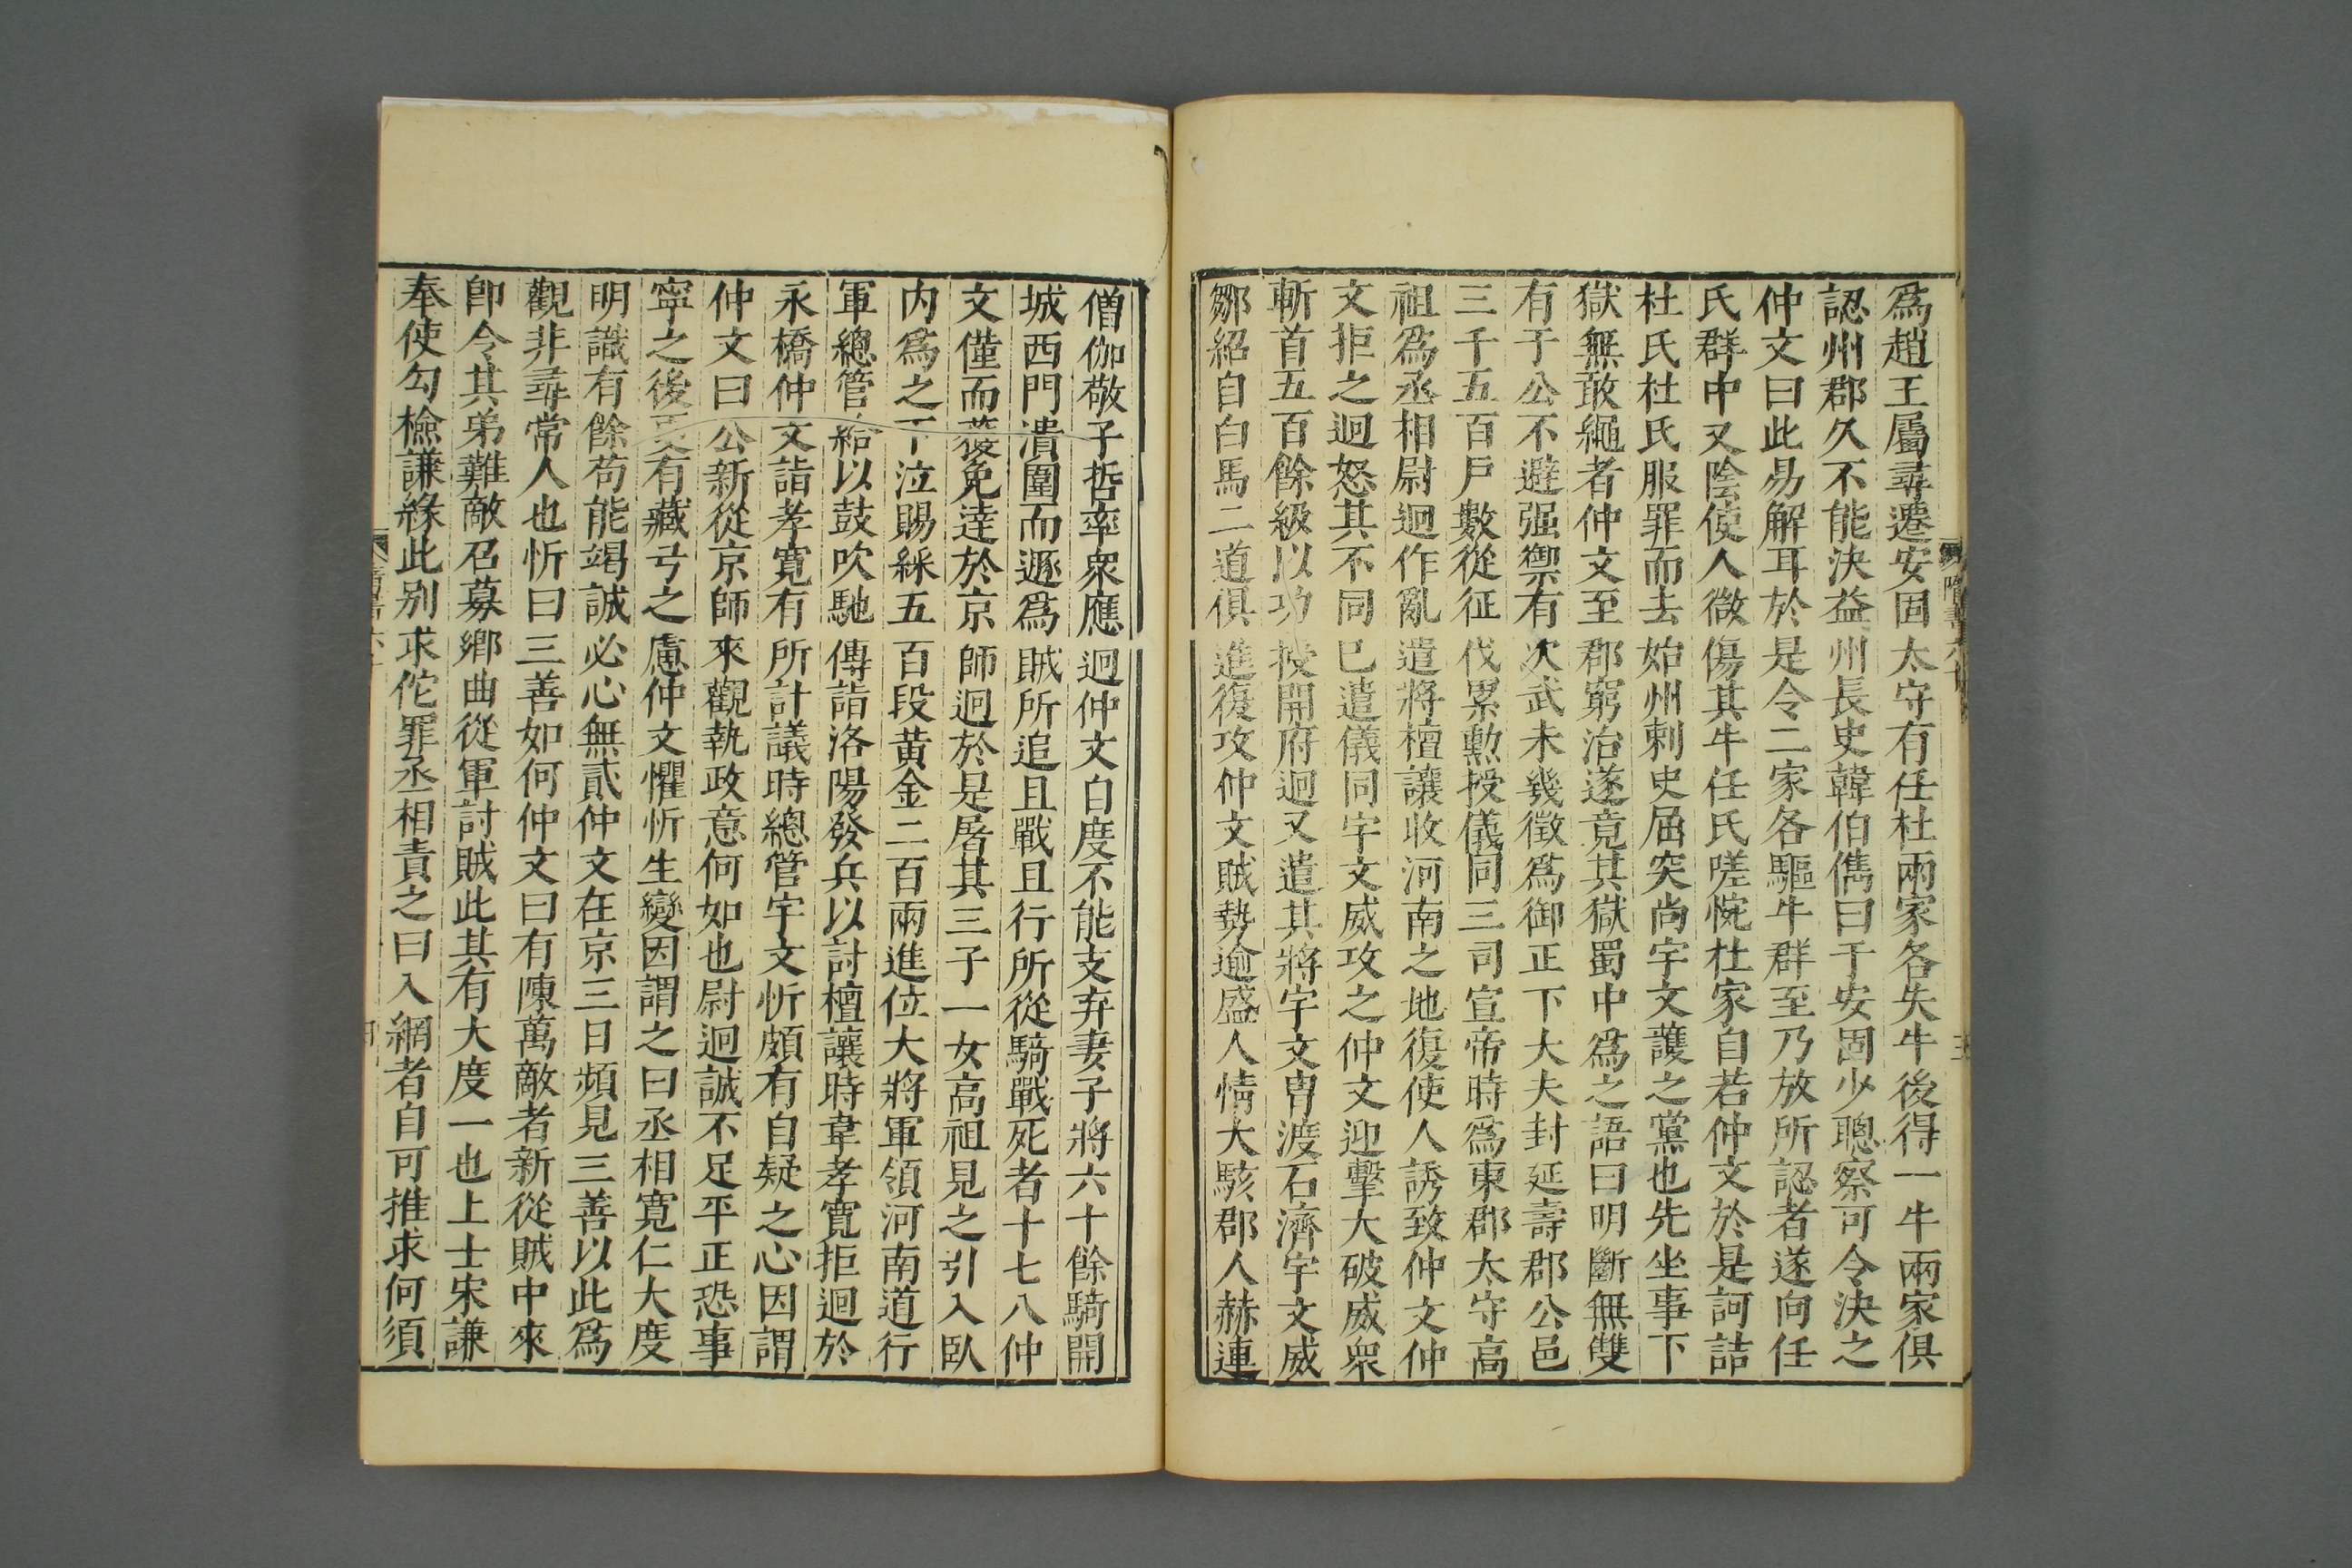 爲趙王屬尋遷安固太守有任杜兩家各失牛後得一牛兩家俱
認州郡久不能決益州長史韓伯儁曰于安固少聰察可令決之
仲文曰此易解耳於是令二家各驅牛群至乃放所認者遂向任
氏群中又陰使人微傷其牛任氏嗟惋杜家自若仲文於是訶詰
杜氏杜氏服罪而去始州刺史屈突尚宇文護之黨也先坐事下
獄無敢繩者仲文至郡窮治遂竟其獄蜀中爲之語曰明斷無雙
有于公不避强禦有次武未幾徵爲御正下大夫封延壽郡公邑
三千五百戶數從征伐累勲授儀同三司宣帝時爲東郡太守高
祖爲丞相尉迥作亂遣將檀讓收河南之地復使人誘致仲文仲
文拒之迥怒其不同已遣儀同宇文威攻之仲文迎擊大破威衆
斬首五百餘級以功授開府迥又遣其將宇文冑渡石濟宇文威
鄒紹自白馬二道俱進復攻仲文賊勢逾盛人情大駭郡人赫連
僧伽敬子哲率衆應迥仲文自度不能支弃妻子將六十餘騎開
城西門潰圍而遯爲賊所追且戰且行所從騎戰死者十七八仲
文僅而獲免達於京師迥於是屠其三子一女高祖見之引入臥
内爲之下泣賜綵五百段黄金二百兩進位大將軍領河南道行
軍總管給以鼓吹馳傳詣洛陽發兵以討檀讓時韋孝寬拒迥於
永橋仲文詣孝寬有所計議時總管宇文忻頗有自疑之心因謂
仲文曰公新從京師來觀執政意何如也尉迥誠不足平正恐事
寧之後更有藏弓之慮仲文懼忻生變因謂之曰丞相寬仁大度
明識有餘苟能竭誠必心無貳仲文在京三日頻見三善以此爲
觀非尋常人也忻曰三善如何仲文曰有陳萬敵者新從賊中來
卽令其弟難敵召募鄉曲從軍討賊此其有大度一也上士宋謙
奉使勾檢謙緣此别求佗罪丞相責之曰入網者自可推求何須